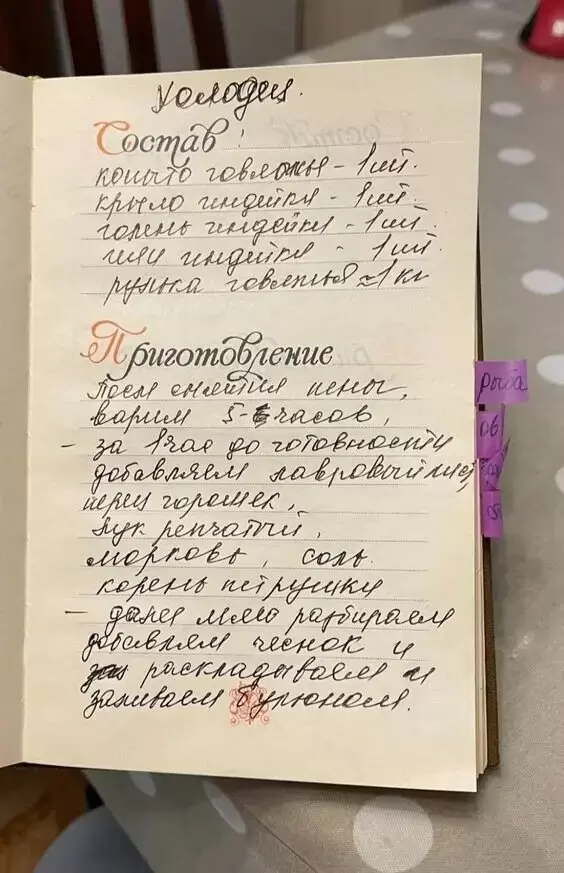 Холодец.
Состав:
копыто говяжье - 1 шт.
крыло индейки - 1 шт.
голень индейки - 1 шт.
шеи индейки - 1 шт.
рулька говяжья ≈ 1 кг
Приготовление
После снятия пены,
варим 5-6 часов,
- за 1 час до готовности
добавляем лавровый лист,
перец горошек,
лук репчатый,
морковь, соль.
корень петрушки
- далее мясо разбираем
добавляем чеснок и
раскладываем и
заливаем бульоном.
рыба
ов